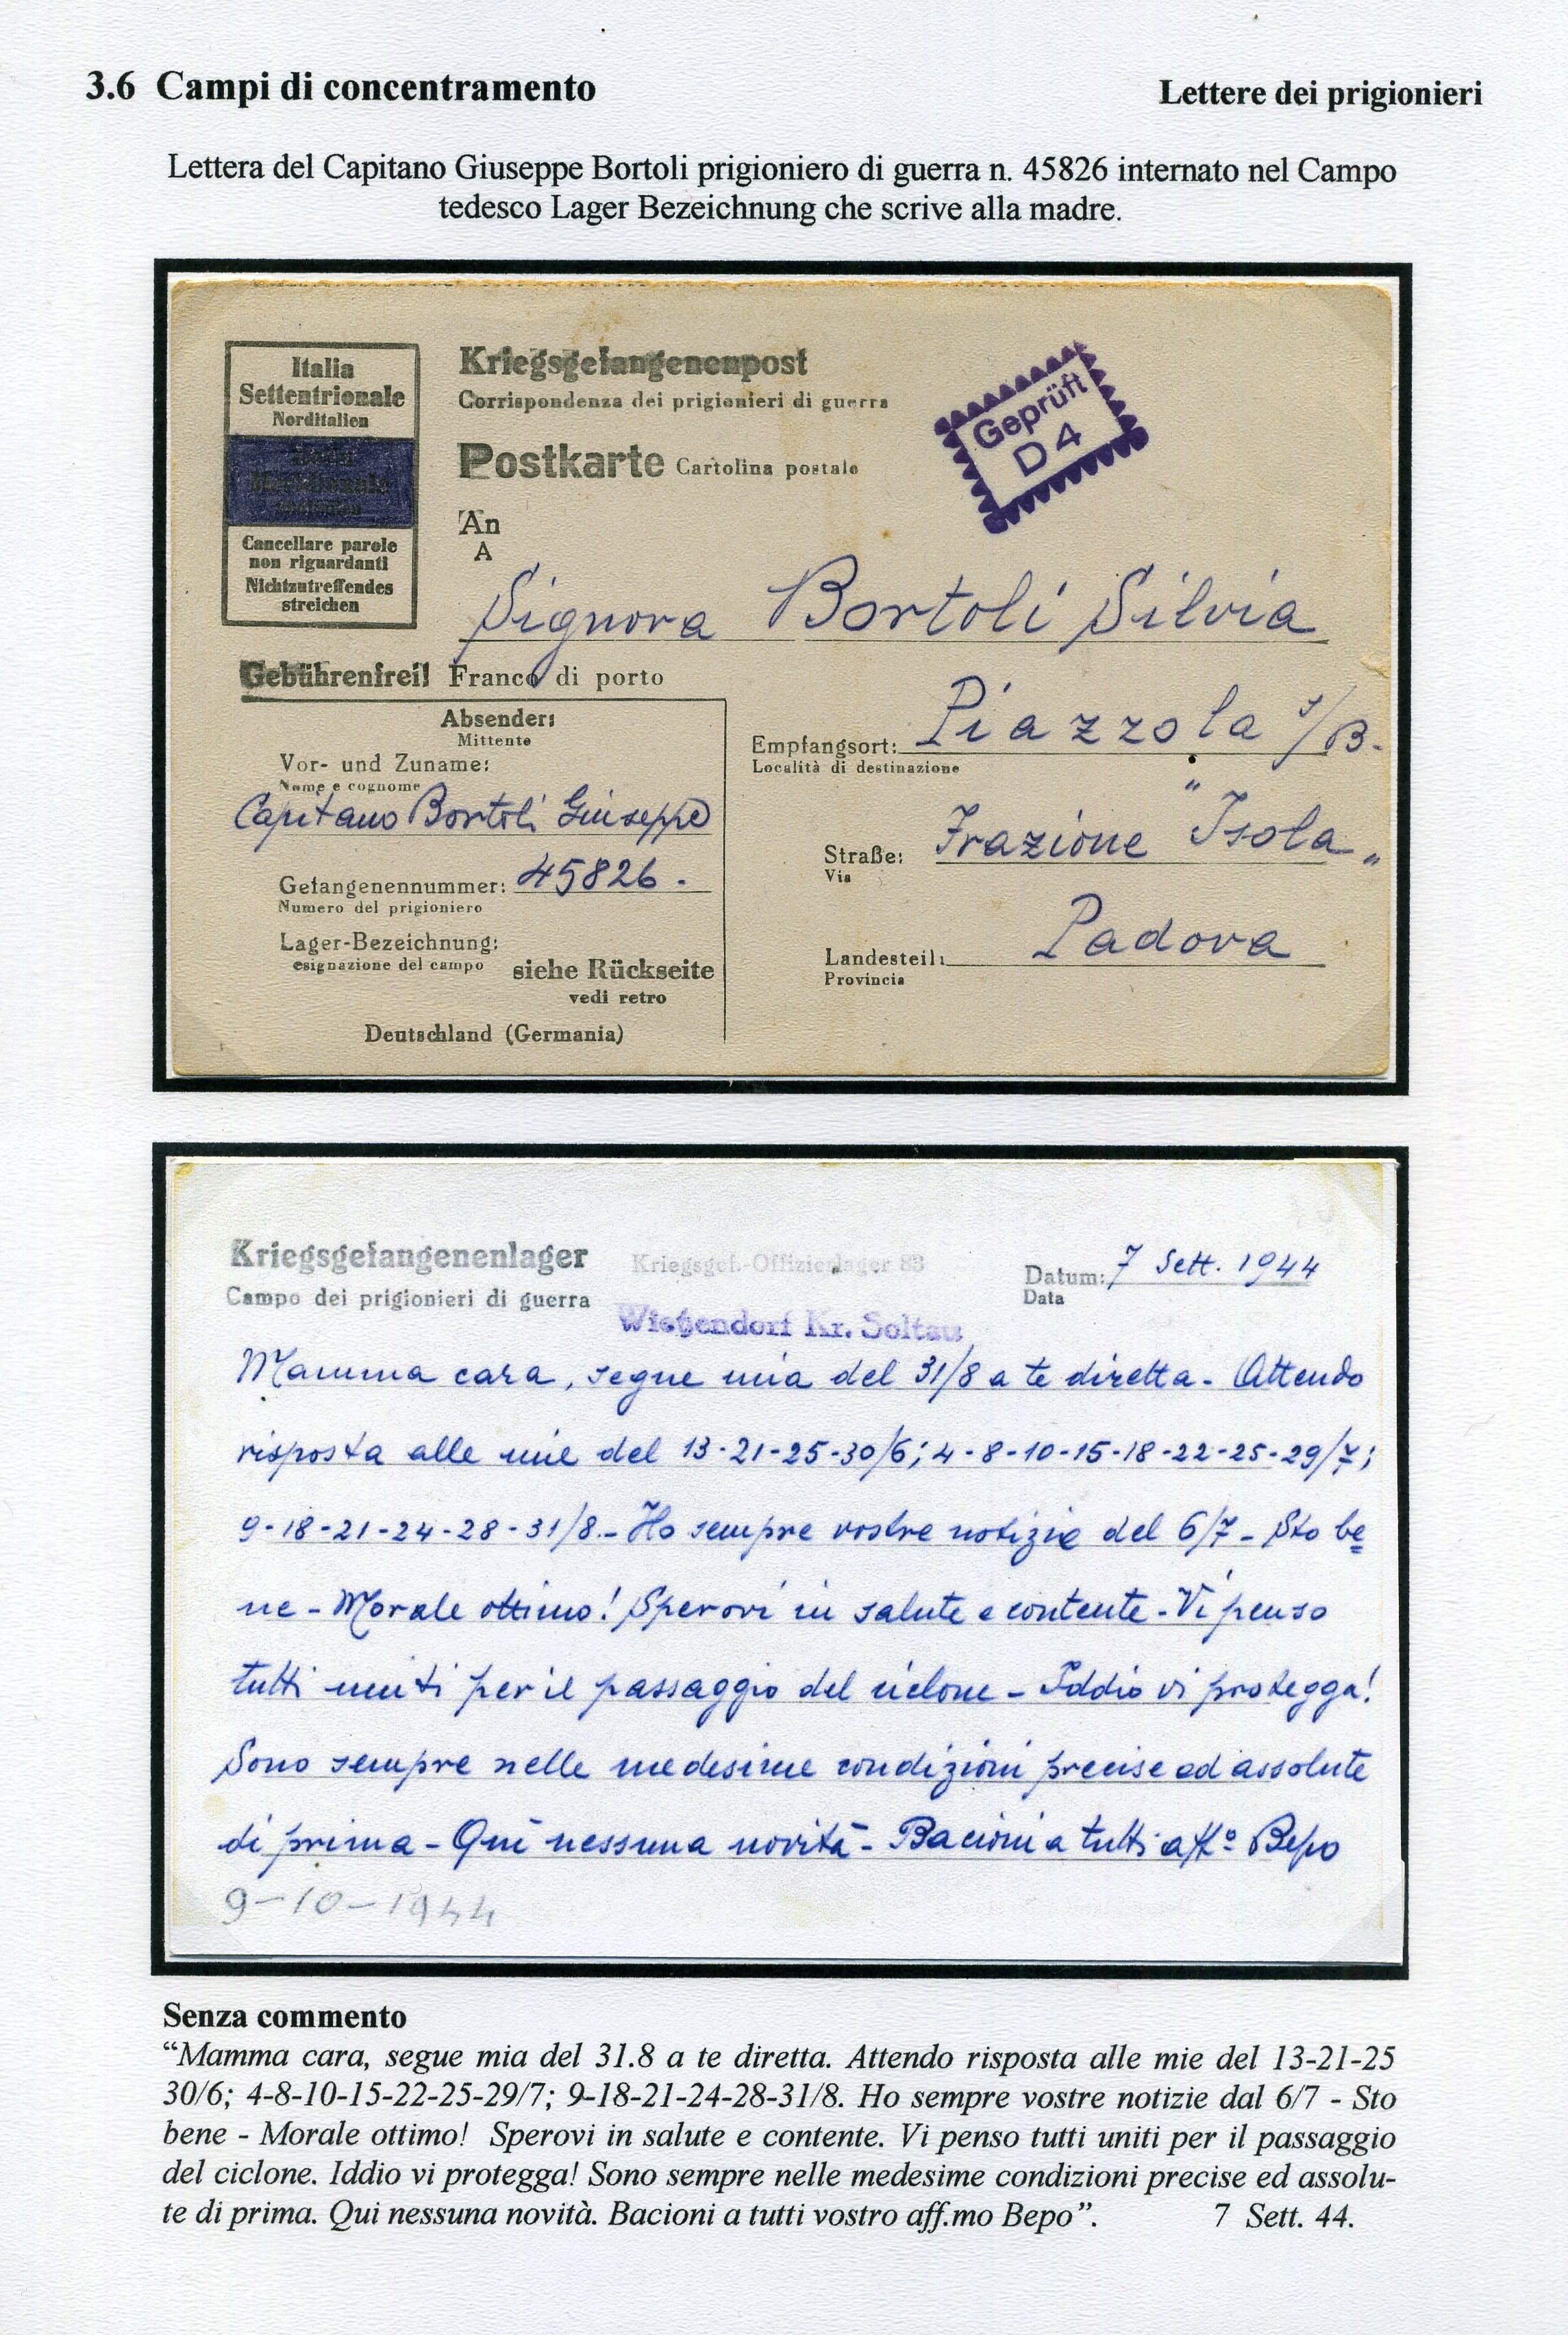 3.6 Campi di concentramento
Lettere dei prigionieri
Lettera del Capitano Giuseppe Bortoli prigioniero di guerra n. 45826 internato nel Campo
tedesco Lager Bezeichnung che scrive alla madre.
Italia
Settentrionale
Norditalien
Cancellare parole
non riguardanti
Nichtzutreffendes
streichen
Kriegsgefangenenpost
Corrispondenza dei prigionieri di guerra
Postkarte Cartolina postale
Geprüft
D 4
An
A
Signora Bortoli Silvia
Gebührenfrei! Franco di porto
Absender:
Mittente
Vor- und Zuname:
Nome e cognome
Capitano Bortoli Giuseppe
Gefangenennummer: 45826.
Numero del prigioniero
Lager-Bezeichnung:
esignazione del campo
siehe Rückseite
vedi retro
Deutschland (Germania)
Empfangsort: Piazzola s/B.
Località di destinazione
Straße: Frazione "Isola"
Via
Landesteil: Padova
Provincia
Kriegsgefangenenlager
Campo dei prigionieri di guerra
Kriegsgef.-Offizierlager 83
Wietzendorf Kr. Soltau
Datum: 7 Sett. 1944
Data
Mamma cara, segue mia del 31/8 a te diretta - Attendo
risposta alle mie del 13-21-25-30/6; 4-8-10-15-18-22-25-29/7;
9-18-21-24-28-31/8 - Ho sempre vostre notizie del 6/7 - Sto be=
ne - Morale ottimo! Sperovi in salute e contente - Vi penso
tutti uniti per il passaggio del ciclone - Iddio vi protegga!
Sono sempre nelle medesime condizioni precise ed assolute
di prima - Qui nessuna novità - Bacioni a tutti aff.º Bepo
9-10-1944
Senza commento
“Mamma cara, segue mia del 31.8 a te diretta. Attendo risposta alle mie del 13-21-25
30/6; 4-8-10-15-22-25-29/7; 9-18-21-24-28-31/8. Ho sempre vostre notizie dal 6/7 - Sto
bene - Morale ottimo! Sperovi in salute e contente. Vi penso tutti uniti per il passaggio
del ciclone. Iddio vi protegga! Sono sempre nelle medesime condizioni precise ed assolu-
te di prima. Qui nessuna novità. Bacioni a tutti vostro aff.mo Bepo”. 7 Sett. 44.